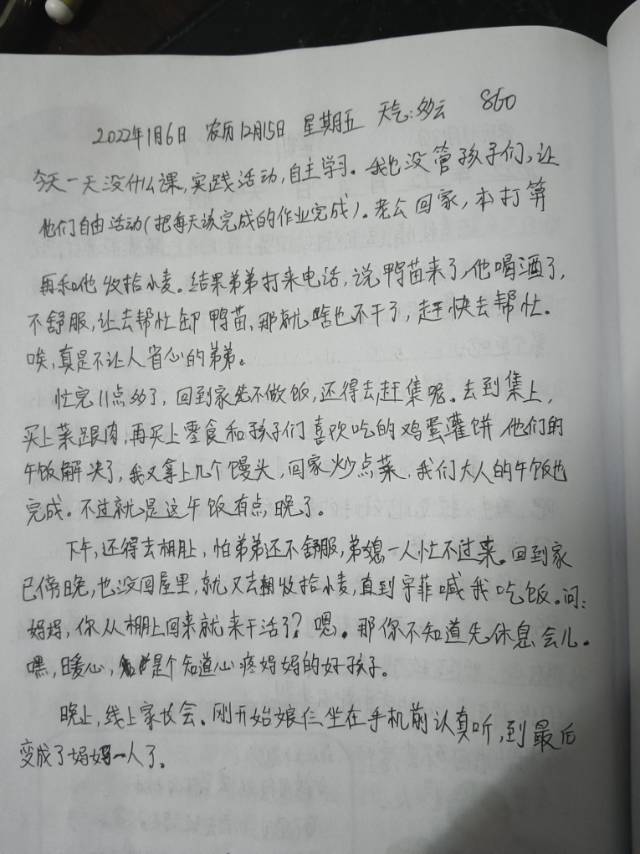 2022年1月6日 农历12月15日 星期五 天气:多云 860
今天一天没什么课,实践活动,自主学习。我也没管孩子们,让
他们自由活动(把每天该完成的作业完成)。老公回家,本打算
再和他收拾小麦。结果弟弟打来电话,说鸭苗来了,他喝酒了,
不舒服,让去帮忙卸鸭苗,那就啥也不干了,赶快去帮忙。
唉,真是不让人省心的弟弟。
忙完11点多了,回到家先不做饭,还得去赶集呢。去到集上,
买上菜跟肉,再买上零食和孩子们喜欢吃的鸡蛋灌饼,他们的
午饭解决了,我又拿上几个馒头,回家炒点菜,我们大人的午饭也
完成。不过就是这午饭有点晚了。
下午,还得去棚上,怕弟弟还不舒服,弟媳一人忙不过来。回到家
已傍晚,也没回屋里,就又去收拾小麦,直到宇菲喊我吃饭。问:
妈妈,你从棚上回来就来干活了?嗯。那你不知道先休息会儿。
嘿,暖心,是个知道心疼妈妈的好孩子。
晚上,线上家长会。刚开始娘仨坐在手机前认真听,到最后
变成了妈妈一人了。